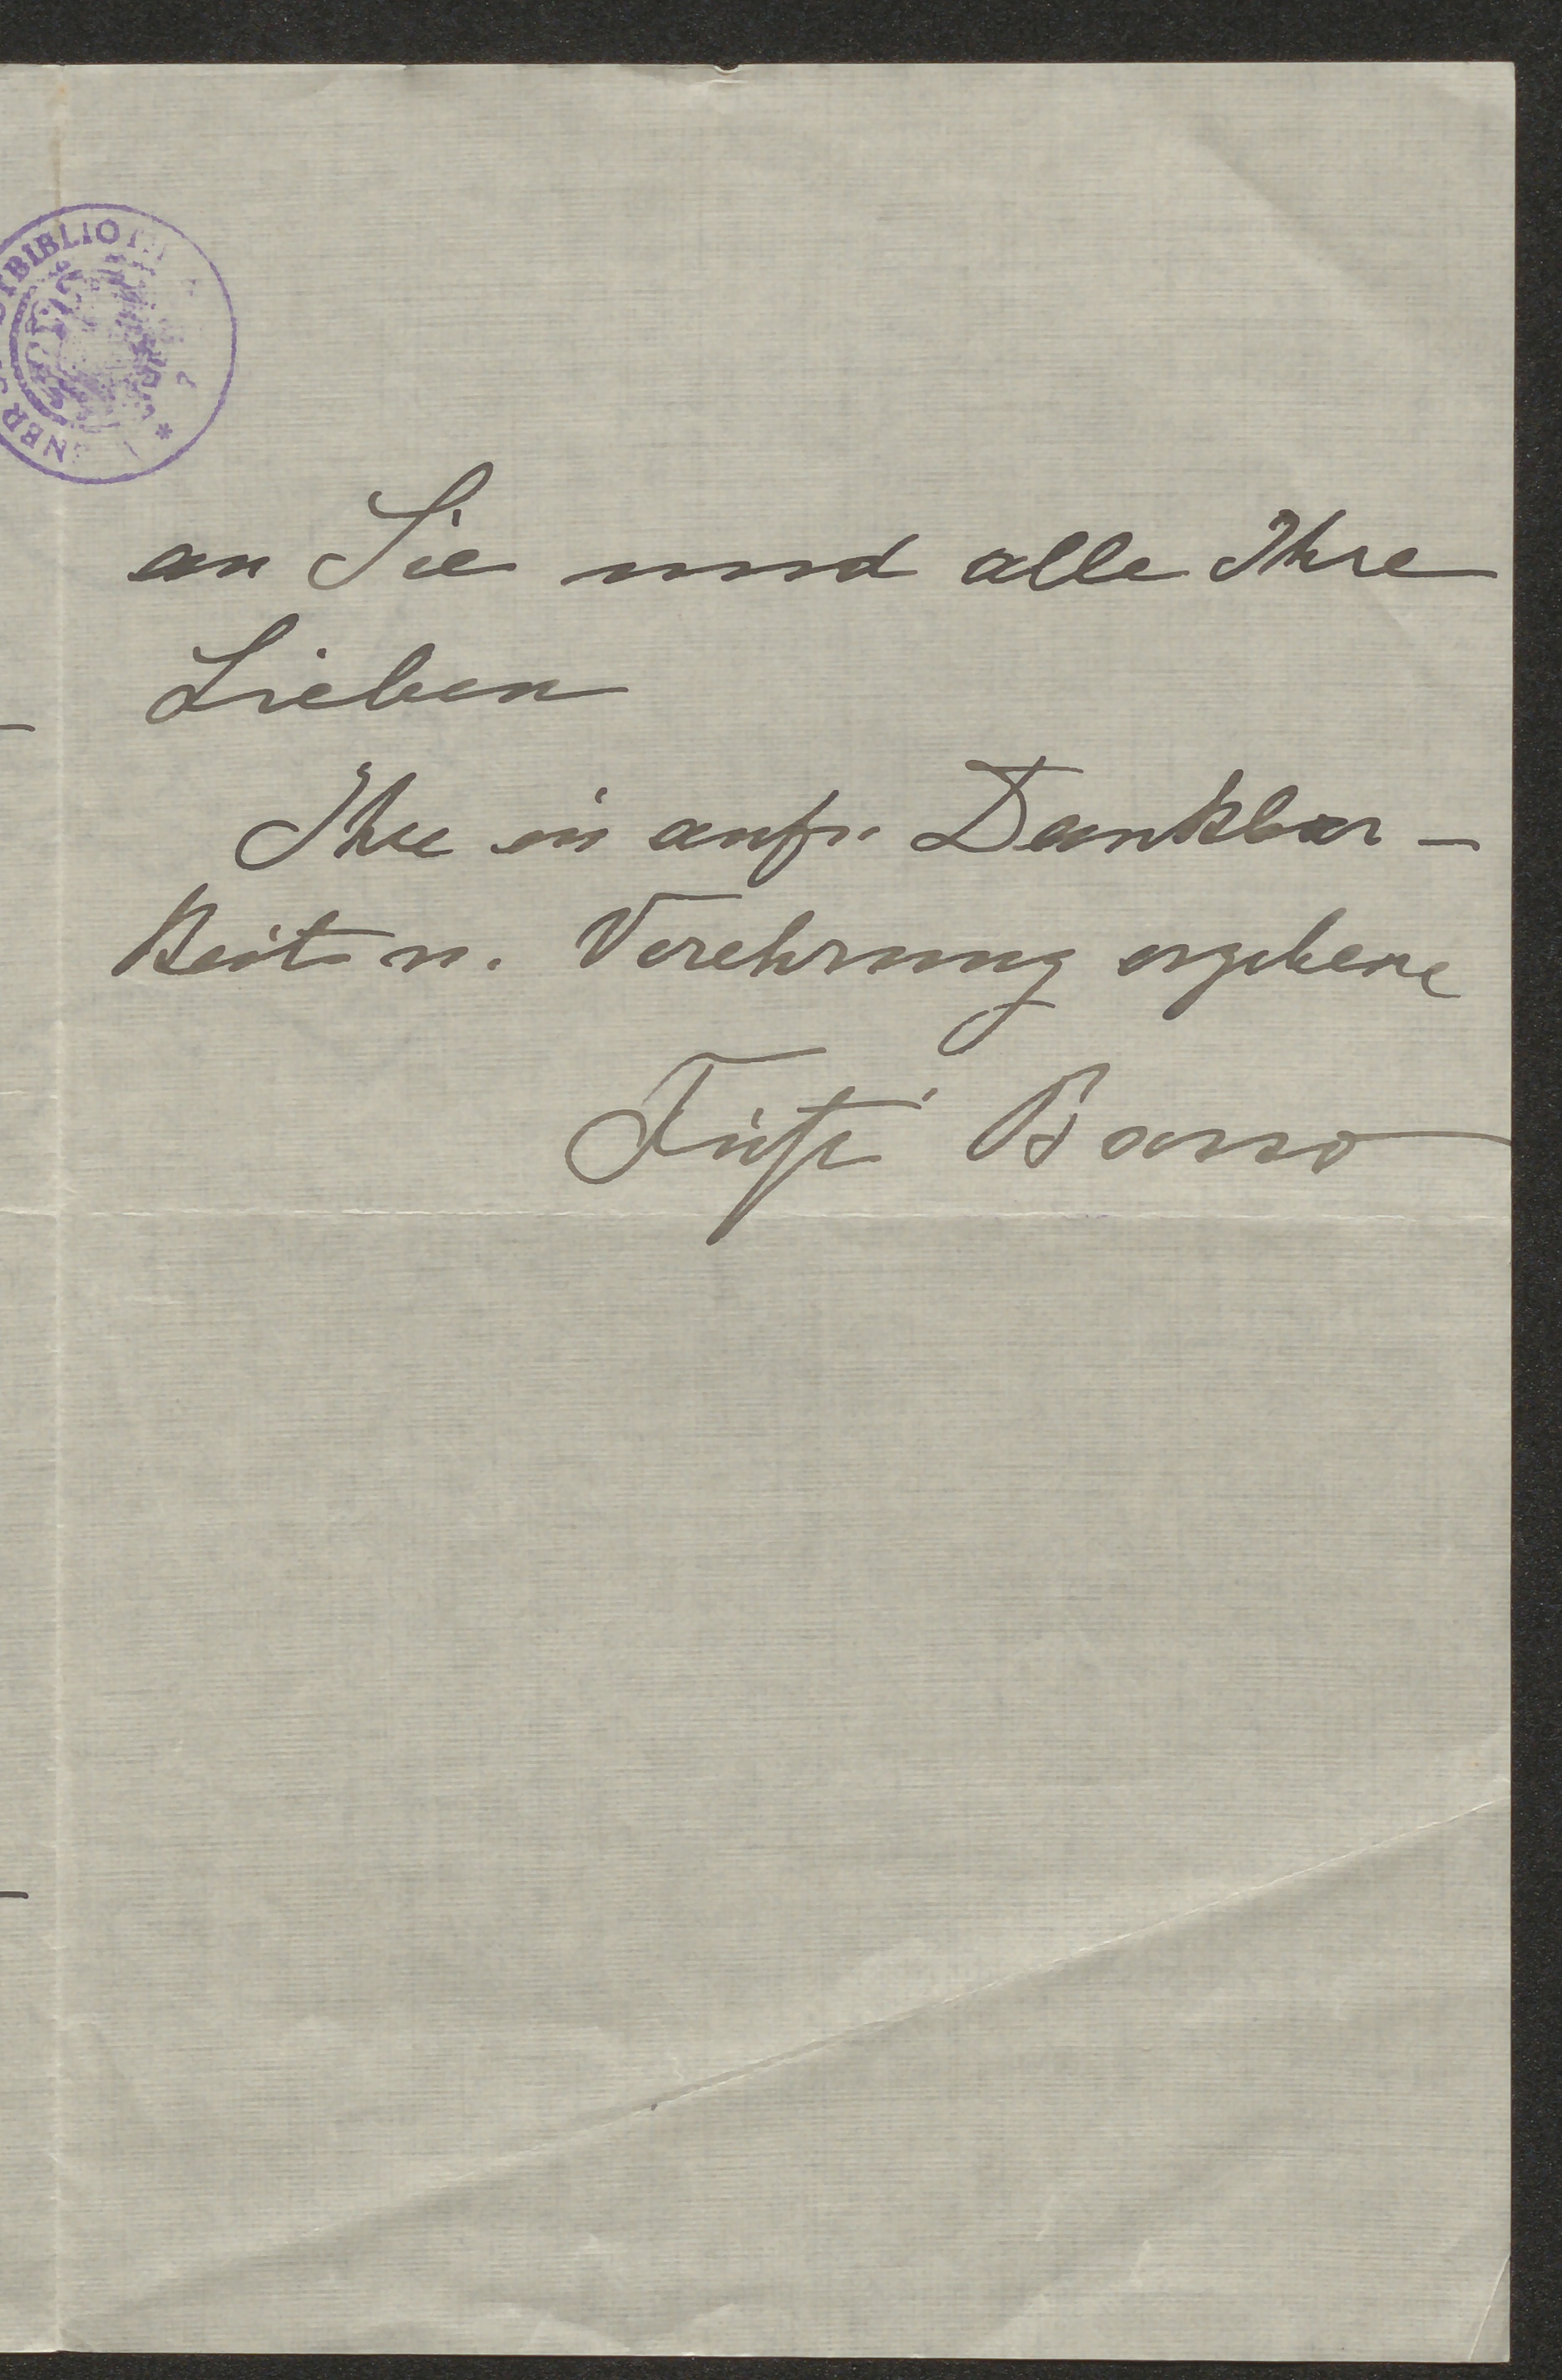 BIBLIO
an Sie und alle Ihre
Lieben
Ihre in aufr. Dankbar-
keit u. Verehrung ergebene